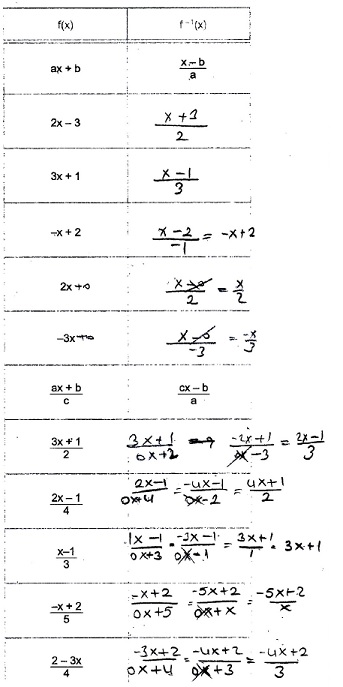 f(x) f⁻¹(x)
ax + b (x - b)/a
2x - 3 (x + 3)/2
3x + 1 (x - 1)/3
-x + 2 (x - 2)/-1 = -x+2
2x+0 (x - 0)/2 = x/2
-3x+0 (x - 0)/-3 = -x/3
(ax + b)/c (cx - b)/a
(3x + 1)/2 (3x+1)/(0x+2) → (-2x+1)/(0x-3) = (2x-1)/3
(2x - 1)/4 (2x-1)/(0x+4) = (-4x-1)/(0x-2) = (4x+1)/2
(x-1)/3 (1x-1)/(0x+3) = (-3x-1)/(0x-1) = (3x+1)/1 = 3x+1
(-x + 2)/5 (-x+2)/(0x+5) = (-5x+2)/(0x+x) = (-5x+2)/x
(2 - 3x)/4 (-3x+2)/(0x+4) = (-4x+2)/(0x+3) = (-4x+2)/3